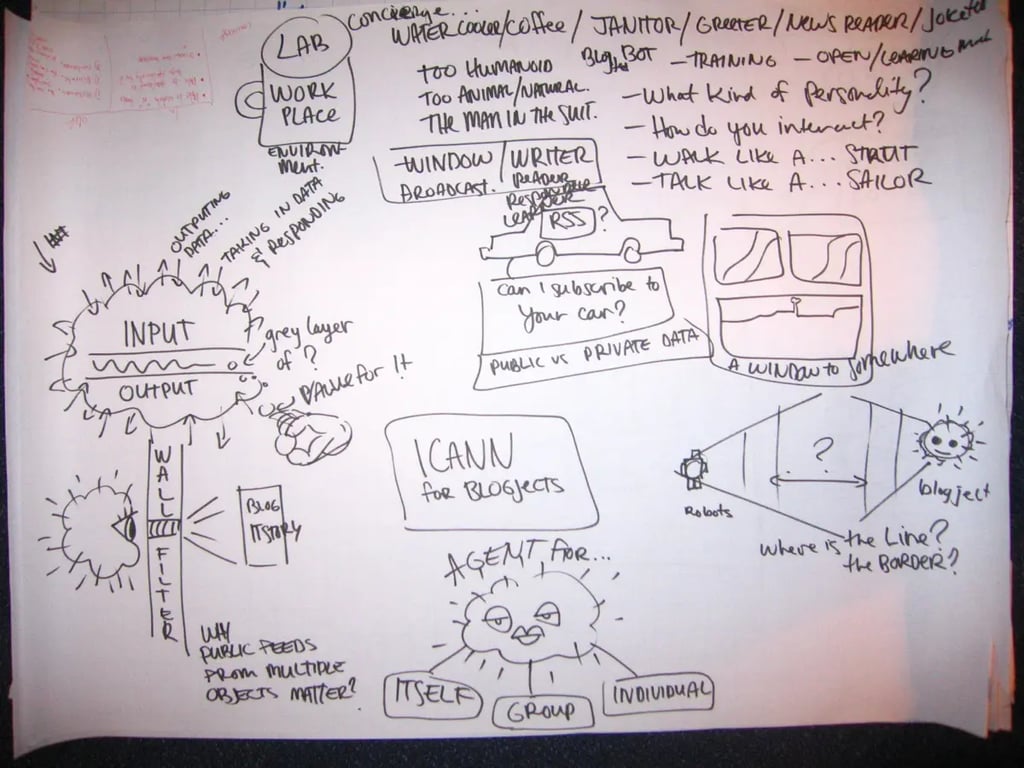 concierge...
WATER COOLER/COFFEE / JANITOR/GREETER/NEWS READER/JOKETER
LAB
WORK
PLACE
ENVIRON
MENT.
TOO HUMANOID
TOO ANIMAL/NATURAL.
THE MAN IN THE SUIT.
BLOGJECT BOT
- TRAINING - OPEN/LEARNING
- What kind of personality?
- How do you interact?
- WALK LIKE A... STRUT
- TALK LIKE A... SAILOR
WINDOW / WRITER
BROADCAST. READER
RESPONDER
LEARNER
RSS ?
can I subscribe to
your car?
PUBLIC VS PRIVATE DATA
A WINDOW to somewhere
OUTPUTING
DATA...
TAKING IN DATA
& RESPONDING
INPUT
OUTPUT
grey layer
of ?
VALUE for it
WALL FILTER
BLOG
ITSTORY
WHY
PUBLIC FEEDS
FROM MULTIPLE
OBJECTS MATTER?
ICANN
for BLOGJECTS
?
Robots
blogject
where is the Line?
the BORDER?
AGENT for...
ITSELF
GROUP
INDIVIDUAL